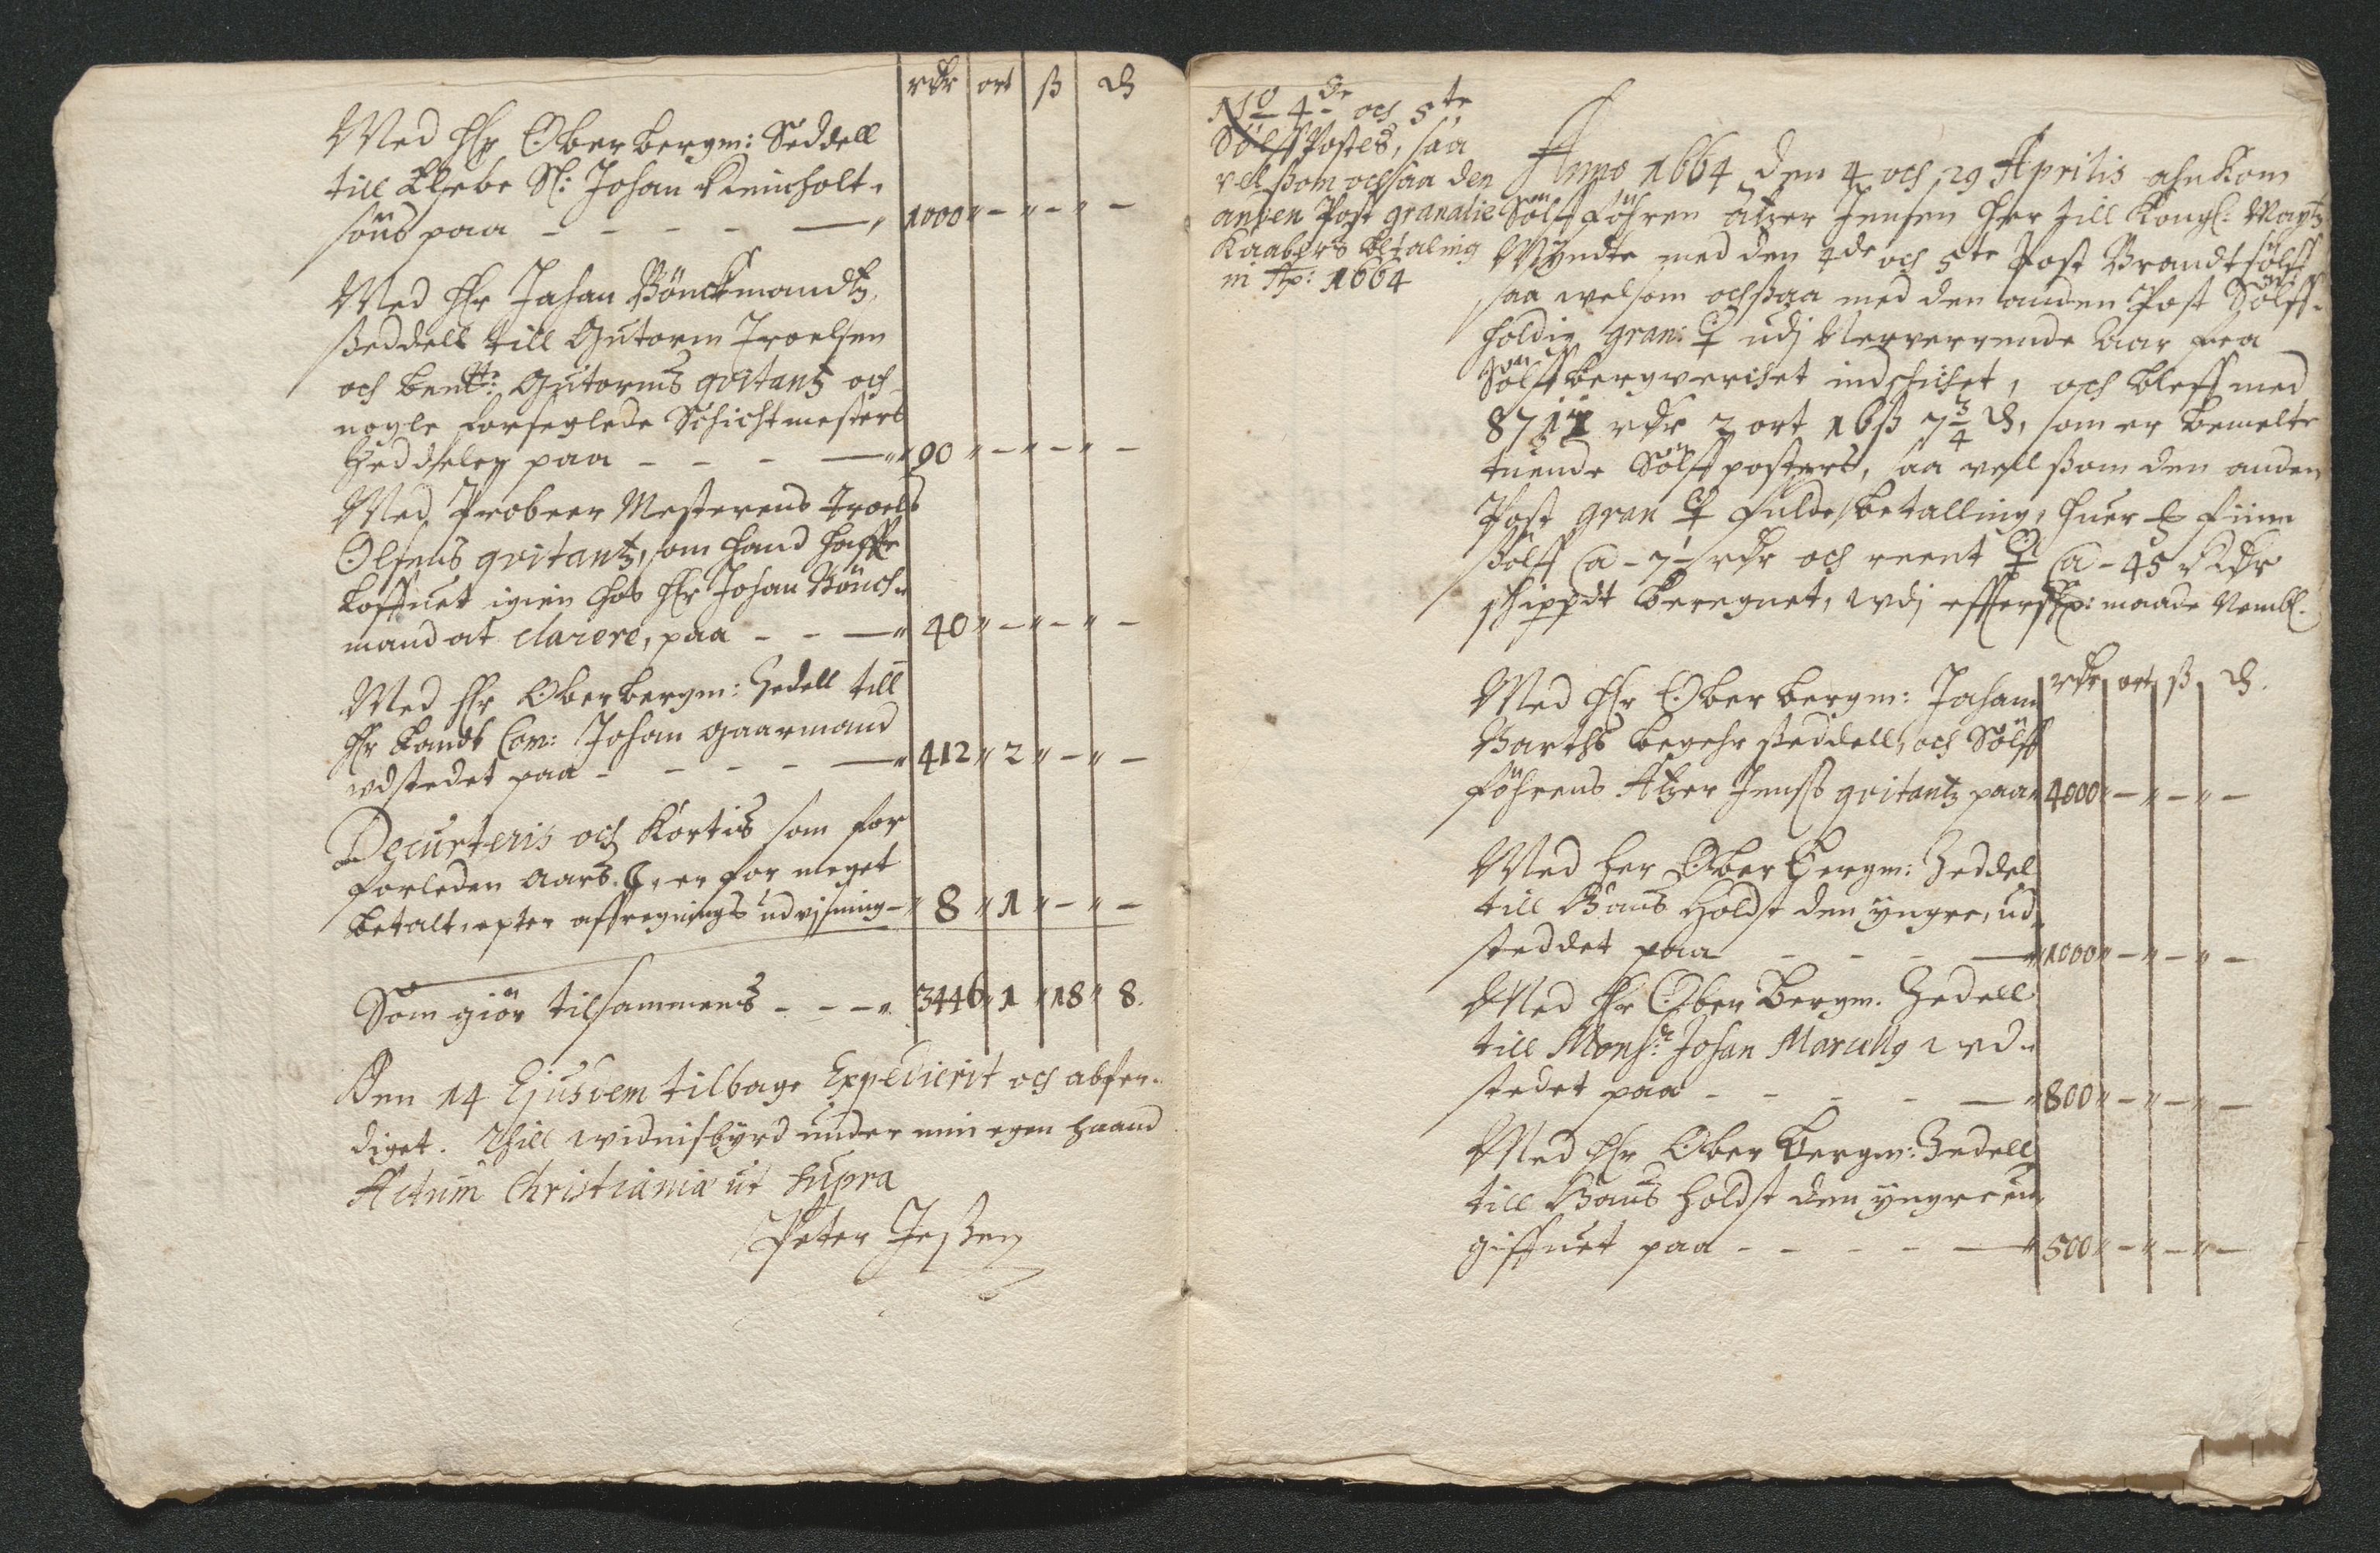 rdr ort ß ₰
Med Hr Oberbergm: Seddell
till Elsebe Sl: Johan Reinholt-
søns paa - - - - 1000 " - " - " -
Med Hr Johan Bönckmandtz
Zeddell till Gutorm Troelsen
och bente: Gutorms qvitantz och
nogle forseglede Schichtmesters
Zeddeler paa - - - " 90 " - " - " -
Med Probeer Mesterens Troels
Olsens qvitantz, som hand haffr
loffuet igien hos Hr Johan Bönch-
mand at clarere, paa - - " 40 " - " - " -
Med Hr Oberbergm: Zedell till
Hr Landt Com: Johan Gaarmand
udstedet paa - - - - " 412 " 2 " - " -
Decurteris och Kortis som for
forleden Aars er for meget
betalt, epter affregnings udvisning - " 8 " 1 " - " -
Som giör tilsammens - - - " 3446 " 1 " 18 " 8.
Den 14 Ejusdem tilbage Expedierit och abfer-
diget. Thill widnisbyrd under min egen Haand
Actum Christiania ut supra
Peter Jeßen
No 4de och 5te
Sölff Postes, saa
vel som ochsaa den
anden Post granalie
Kaabers betaling
in Ap: 1664
Anno 1664 den 4 och 29 Aprilis ahnkom
Sölff föhren Atzer Jensen her till Kongl: Maytz
Myndte med den 4de och 5te Post Brandtsölff
saa welsom ochsaa med den anden Post Sölff-
holdig gran: ♀ udj Nerverrende Aar fra
Sölffbergverchet indschichet, och bleff med
8711 rdr 2 ort 16 ß 7 3/4 ₰, som er bemelte
tuende Sölff posters, saa vell som den anden
Post gran ♀ fulde betalling, huer fiinn
Sölff @ - 7 - rdr och reent ♀ @ - 45 Rdr
schippdt beregnet, udj effterschr: maade Nembl.
rdr ort ß ₰.
Med Hr Oberbergm: Johan
Barths begehr Zeddell, och Sölff
föhrens Atzer Jenss qvitantz paa " 4000 " - " - " -
Med her Ober Bergm: Zeddel
till Baus Holdst den yngre, ud-
steddet paa - - - " 1000 " - " - " -
Med Hr Ober Bergm. Zedell
till Monsr: Johan Marselly ud-
stedet paa - - - - " 800 " - " - " -
Med Hr Ober Bergm: Zedell
till Baus Holdst den yngre ud-
giffuet paa - - - - " 500 " - " - " -